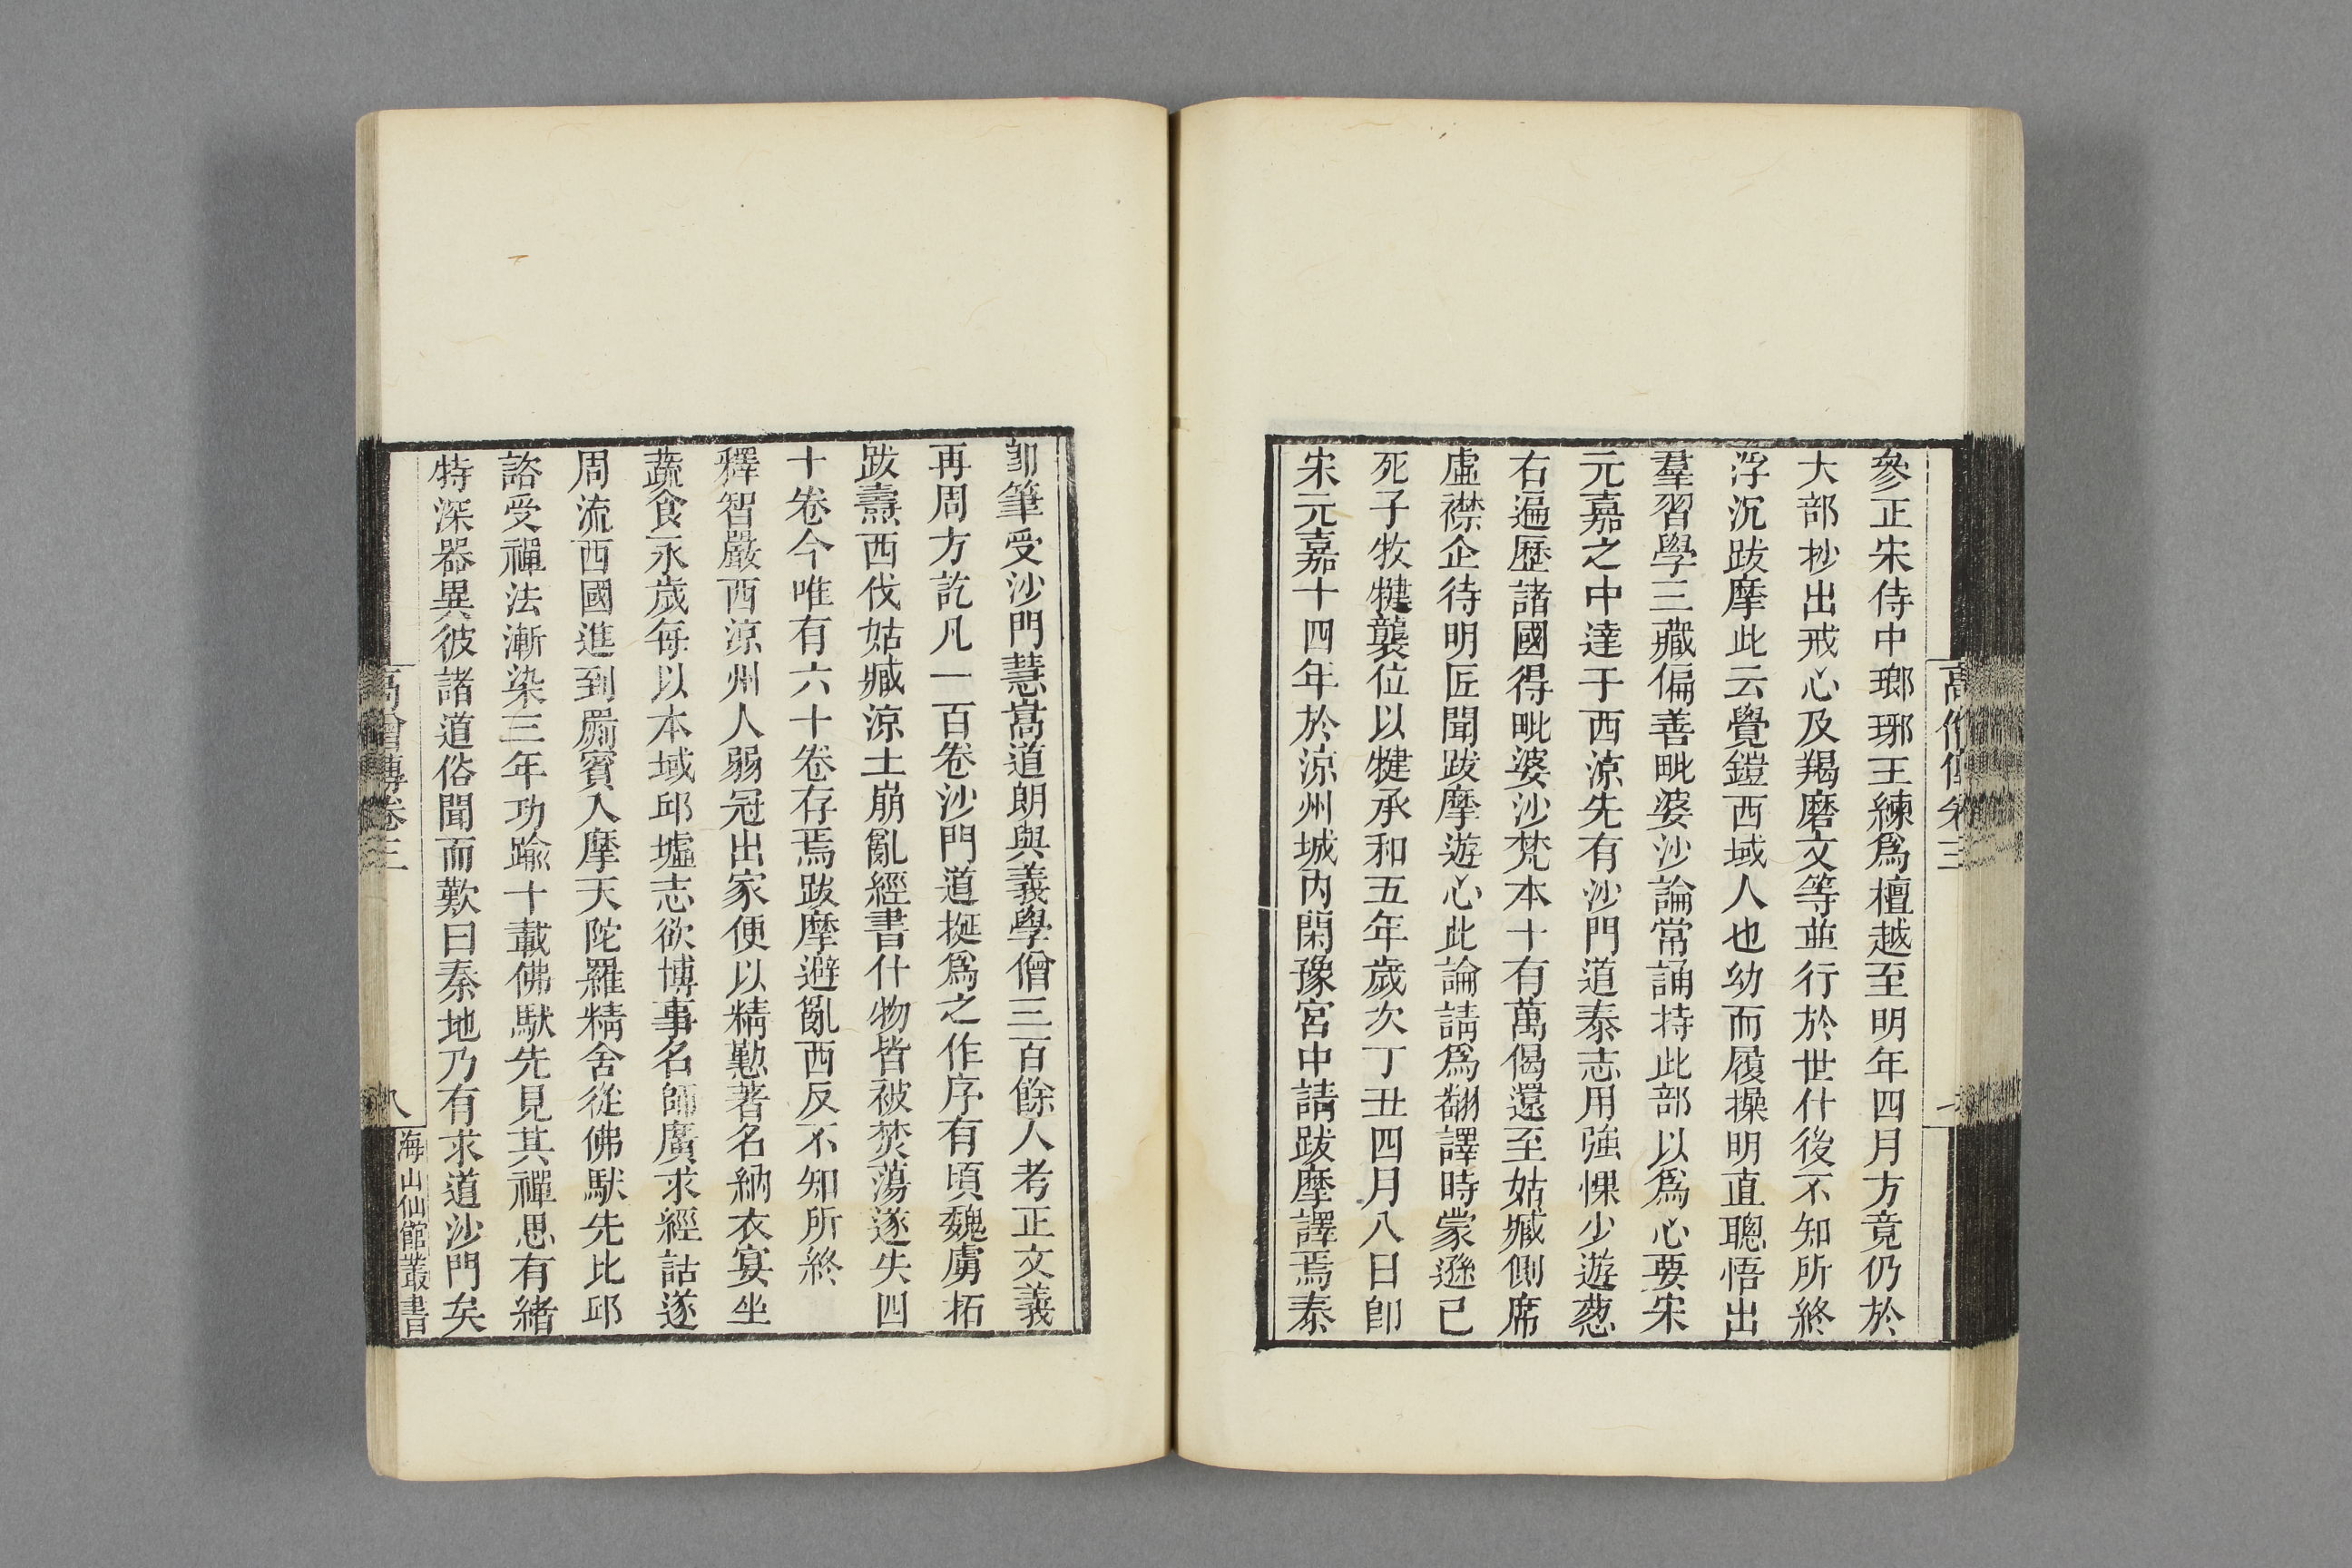 參正宋侍中瑯琊王練爲檀越至明年四月方竟仍於
大部抄出戒心及羯磨文等並行於世什後不知所終
浮沉跋摩此云覺鎧西域人也幼而履操明直聰悟出
羣習學三藏偏善毗婆沙論常誦持此部以爲心要宋
元嘉之中達于西涼先有沙門道泰志用強悍少遊葱
右遍歷諸國得毗婆沙梵本十有萬偈還至姑臧側席
虛襟企待明匠聞跋摩遊心此論請爲翻譯時蒙遜已
死子牧犍襲位以犍承和五年歲次丁丑四月八日卽
宋元嘉十四年於涼州城內閑豫宮中請跋摩譯焉泰
卽筆受沙門慧嵩道朗與義學僧三百餘人考正文義
再周方訖凡一百卷沙門道挻爲之作序有頃魏虜拓
跋燾西伐姑臧涼土崩亂經書什物皆被焚蕩遂失四
十卷今唯有六十卷存焉跋摩避亂西反不知所終
釋智嚴西涼州人弱冠出家便以精懃著名納衣宴坐
蔬食永歲每以本域邱墟志欲博事名師廣求經誥遂
周流西國進到罽賓入摩天陀羅精舍從佛馱先比邱
諮受禪法漸染三年功踰十載佛馱先見其禪思有緒
特深器異彼諸道俗聞而歎曰秦地乃有求道沙門矣
高僧傳卷三
八
海山仙館叢書